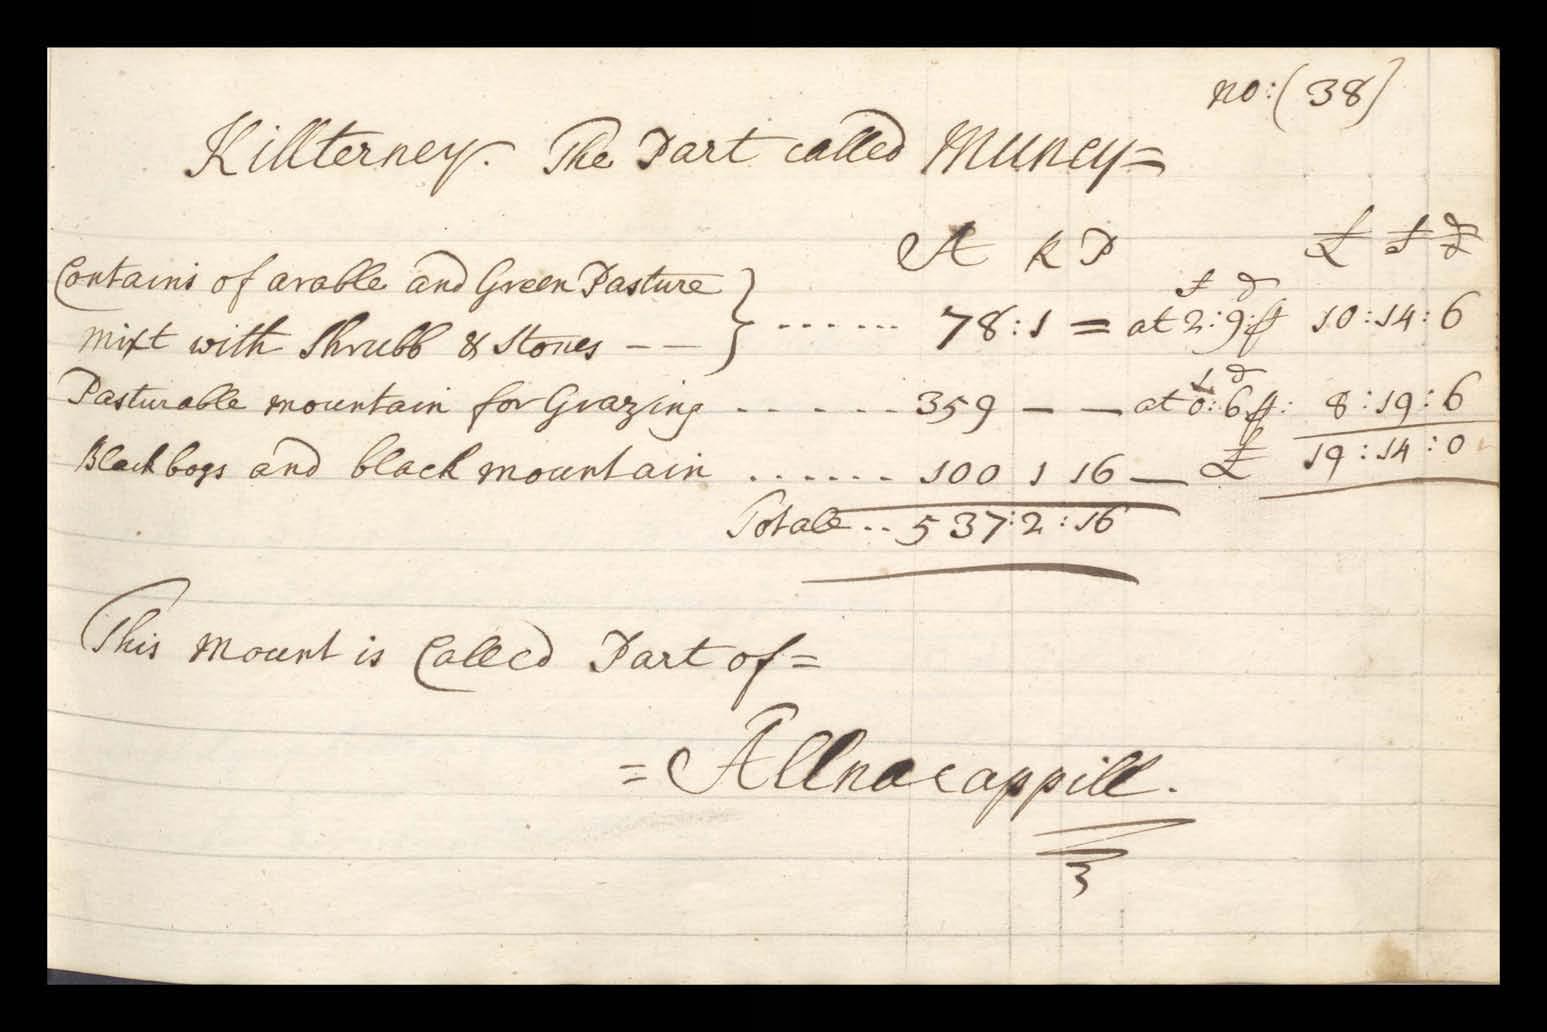 no: (38)
Killterney. The Part called Muney=
A R P £ s d
Contains of arable and Green Pasture
s d
mixt with Shrubb & Stones -- } ...... 78:1 = at 2:9 ⅌ 10:14:6
s d
Pasturable mountain for Grazing ...... 359 — — at 0:6 ⅌: 8:19:6
Black bogs and black mountain ...... 100 1 16 — £ 19:14:0
Totale .. 537:2:16
This mount is Called Part of=
= Allnacappill.